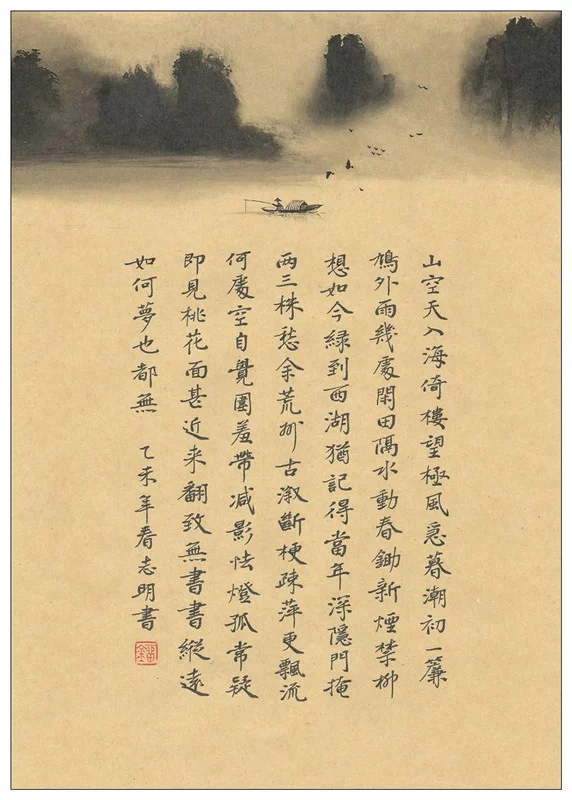 山空天入海倚樓望極風急暮潮初一簾
鳩外雨幾處閑田隔水動春鋤新煙禁柳
想如今緑到西湖猶記得當年深隱門掩
两三株愁余荒州古溆斷梗疎萍更飄流
何處空自覺圍羞帶减影怯燈孤常疑
即見桃花面甚近来翻致無書書縱遠
如何夢也都無 乙未年春志明書